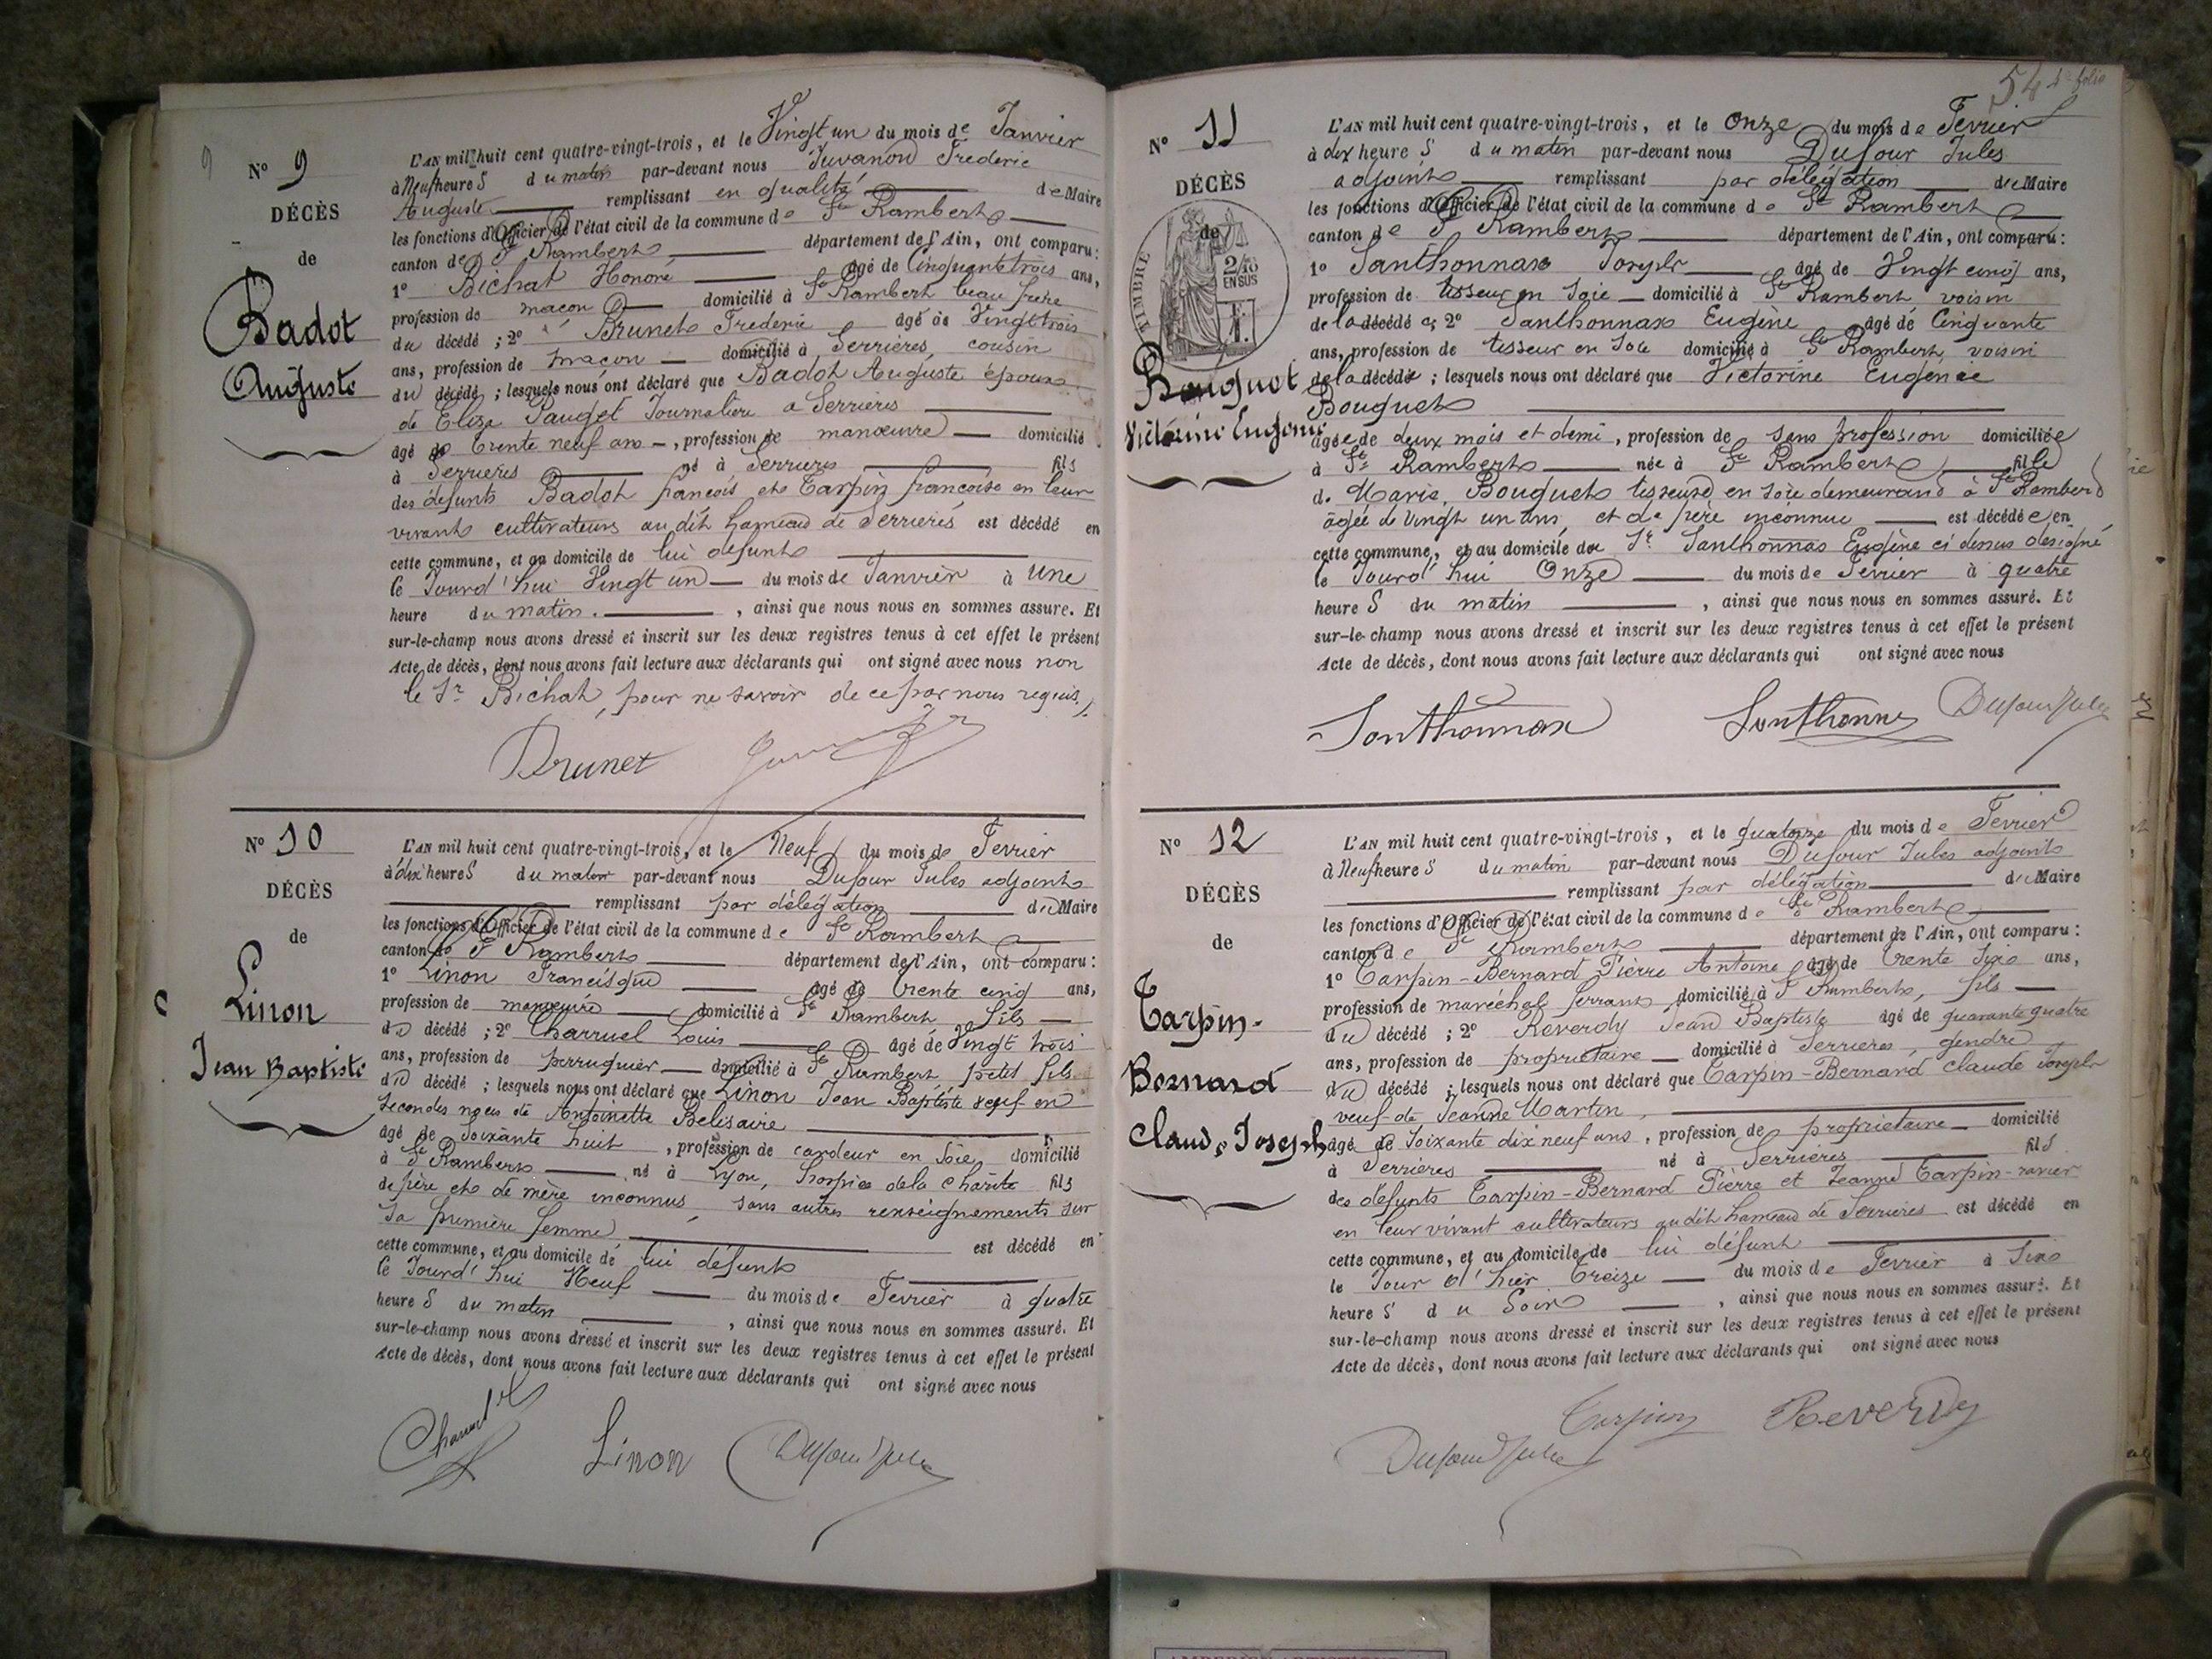 N° 9
DÉCÈS
de
Badot
Auguste
L'AN mil huit cent quatre-vingt-trois, et le Vingt un du mois de Janvier
à Neuf heures du matin par-devant nous Juvanon Frederic
Auguste remplissant en qualité de Maire
les fonctions d'Officier de l'état civil de la commune de St Rambert
canton de St Rambert département de l'Ain, ont comparu :
1° Bichat Honoré âgé de Cinquante trois ans,
profession de maçon domicilié à St Rambert beau frère
du décédé ; 2° Brunet Frederic âgé de Vingt trois
ans, profession de maçon domicilié à Serrières cousin
du décédé ; lesquels nous ont déclaré que Badot Auguste époux
de Eliza Pauget Journalière à Serrières
âgé de trente neuf ans, profession de manœuvre domicilié
à Serrières né à Serrières fils
des défunts Badot françois et Tarpin françoise en leur
vivants cultivateurs au dit hameau de Serrières est décédé en
cette commune, et au domicile de lui défunt
le Jourd'hui Vingt un du mois de Janvier à Une
heure du matin. , ainsi que nous nous en sommes assuré. Et
sur-le-champ nous avons dressé et inscrit sur les deux registres tenus à cet effet le présent
Acte de décès, dont nous avons fait lecture aux déclarants qui ont signé avec nous non
le Sr Bichat, pour ne savoir de ce par nous requis.
Brunet
N° 10
DÉCÈS
de
Linon
Jean Baptiste
L'AN mil huit cent quatre-vingt-trois, et le Neuf du mois de Fevrier
à dix heures du matin par-devant nous Dufour Jules adjoint
remplissant par délégation du Maire
les fonctions d'Officier de l'état civil de la commune de St Rambert
canton de St Rambert département de l'Ain, ont comparu :
1° Linon Francisque âgé de trente cinq ans,
profession de manœuvre domicilié à St Rambert fils
du décédé ; 2° Charruel Louis âgé de Vingt trois
ans, profession de perruquier domicilié à St Rambert petit fils
du décédé ; lesquels nous ont déclaré que Linon Jean Baptiste veuf en
secondes noces de Antoinette Belisaire
âgé de Soixante huit , profession de cardeur en soie domicilié
à St Rambert né à Lyon, hospice de la Charité fils
de père et de mère inconnus, sans autres renseignements sur
sa première femme est décédé en
cette commune, et au domicile de lui défunt
le Jourd'hui Neuf du mois de Fevrier à quatre
heures du matin , ainsi que nous nous en sommes assuré. Et
sur-le-champ nous avons dressé et inscrit sur les deux registres tenus à cet effet le présent
Acte de décès, dont nous avons fait lecture aux déclarants qui ont signé avec nous
Linon Dufour Jules
54 folio
N° 11
DÉCÈS
de
TIMBRE
2/10
EN SUS
Bouquet
Victorine Eugenie
L'AN mil huit cent quatre-vingt-trois, et le Onze du mois de Fevrier
à dix heures du matin par-devant nous Dufour Jules
adjoint remplissant par délégation du Maire
les fonctions d'Officier de l'état civil de la commune de St Rambert
canton de St Rambert département de l'Ain, ont comparu :
1° Santhonnax Joseph âgé de Vingt cinq ans,
profession de tisseur en soie domicilié à St Rambert voisin
de la décédée ; 2° Santhonnax Eugène âgé de Cinquante
ans, profession de tisseur en soie domicilié à St Rambert, voisin
de la décédée ; lesquels nous ont déclaré que Victorine Eugenie
Bouquet
âgée de deux mois et demi, profession de sans profession domiciliée
à St Rambert née à St Rambert fille
de Marie Bouquet tisseuse en soie demeurant à St Rambert
âgée de Vingt un ans, et de père inconnu est décédée en
cette commune, et au domicile du Sr Santhonnax Eugène ci dessus désigné
le Jourd'hui Onze du mois de Fevrier à quatre
heures du matin , ainsi que nous nous en sommes assuré. Et
sur-le-champ nous avons dressé et inscrit sur les deux registres tenus à cet effet le présent
Acte de décès, dont nous avons fait lecture aux déclarants qui ont signé avec nous
Sonthonnax Sonthonnax Dufour Jules
N° 12
DÉCÈS
de
Tarpin-
Bernard
Claude Joseph
L'AN mil huit cent quatre-vingt-trois, et le quatorze du mois de Fevrier
à Neuf heures du matin par-devant nous Dufour Jules adjoint
remplissant par délégation du Maire
les fonctions d'Officier de l'état civil de la commune de St Rambert
canton de St Rambert département de l'Ain, ont comparu :
1° Tarpin-Bernard Pierre Antoine âgé de trente Six ans,
profession de maréchal ferrant domicilié à St Rambert, fils
du décédé ; 2° Reverdy Jean Baptiste âgé de quarante quatre
ans, profession de propriétaire domicilié à Serrières, gendre
du décédé ; lesquels nous ont déclaré que Tarpin-Bernard Claude Joseph
veuf de Jeanne Martin,
âgé de Soixante dix neuf ans, profession de propriétaire domicilié
à Serrières né à Serrières fils
des défunts Tarpin-Bernard Pierre et Jeanne Tarpin-ravier
en leur vivant cultivateurs au dit hameau de Serrières est décédé en
cette commune, et au domicile de lui défunt
le Jour d'hier treize du mois de Fevrier à Six
heures du Soir , ainsi que nous nous en sommes assuré. Et
sur-le-champ nous avons dressé et inscrit sur les deux registres tenus à cet effet le présent
Acte de décès, dont nous avons fait lecture aux déclarants qui ont signé avec nous
Tarpin Reverdy
Dufour Jules